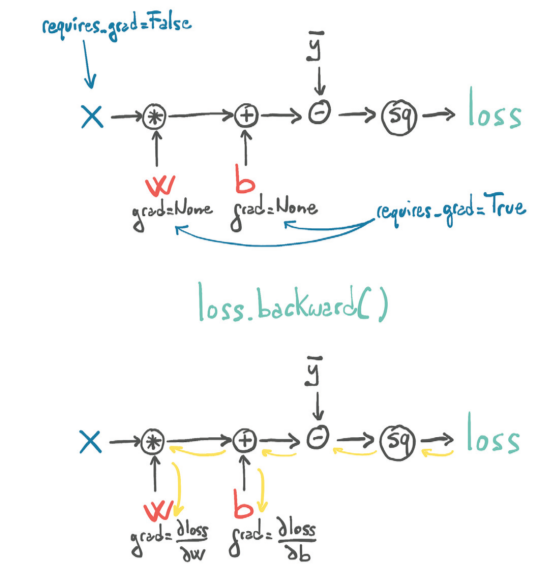 requires_grad=False
ȳ
X * + - sq loss
w b
grad=None grad=None requires_grad=True
loss.backward()
ȳ
X * + - sq loss
w b
grad=∂loss/∂w grad=∂loss/∂b